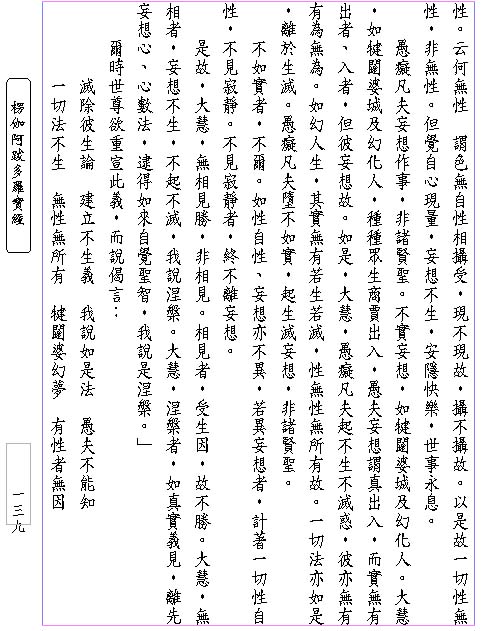 性。云何無性　謂色無自性相攝受，現不現故，攝不攝故。以是故一切性無
性，非無性。但覺自心現量，妄想不生，安隱快樂，世事永息。
愚癡凡夫妄想作事，非諸賢聖。不實妄想，如犍闥婆城及幻化人。大慧
，如犍闥婆城及幻化人，種種眾生商賈出入，愚夫妄想謂真出入，而實無有
出者、入者，但彼妄想故。如是，大慧，愚癡凡夫起不生不滅惑，彼亦無有
有為無為。如幻人生，其實無有若生若滅，性無性無所有故。一切法亦如是
，離於生滅。愚癡凡夫墮不如實，起生滅妄想，非諸賢聖。
不如實者，不爾。如性自性、妄想亦不異，若異妄想者，計著一切性自
性，不見寂靜。不見寂靜者，終不離妄想。
是故，大慧，無相見勝，非相見。相見者，受生因，故不勝。大慧，無
相者，妄想不生，不起不滅，我說涅槃。大慧，涅槃者，如真實義見，離先
妄想心、心數法，逮得如來自覺聖智，我說是涅槃。」
爾時世尊欲重宣此義，而說偈言：
滅除彼生論　建立不生義　我說如是法　愚夫不能知
一切法不生　無性無所有　犍闥婆幻夢　有性者無因
楞伽阿跋多羅寶經
一三九